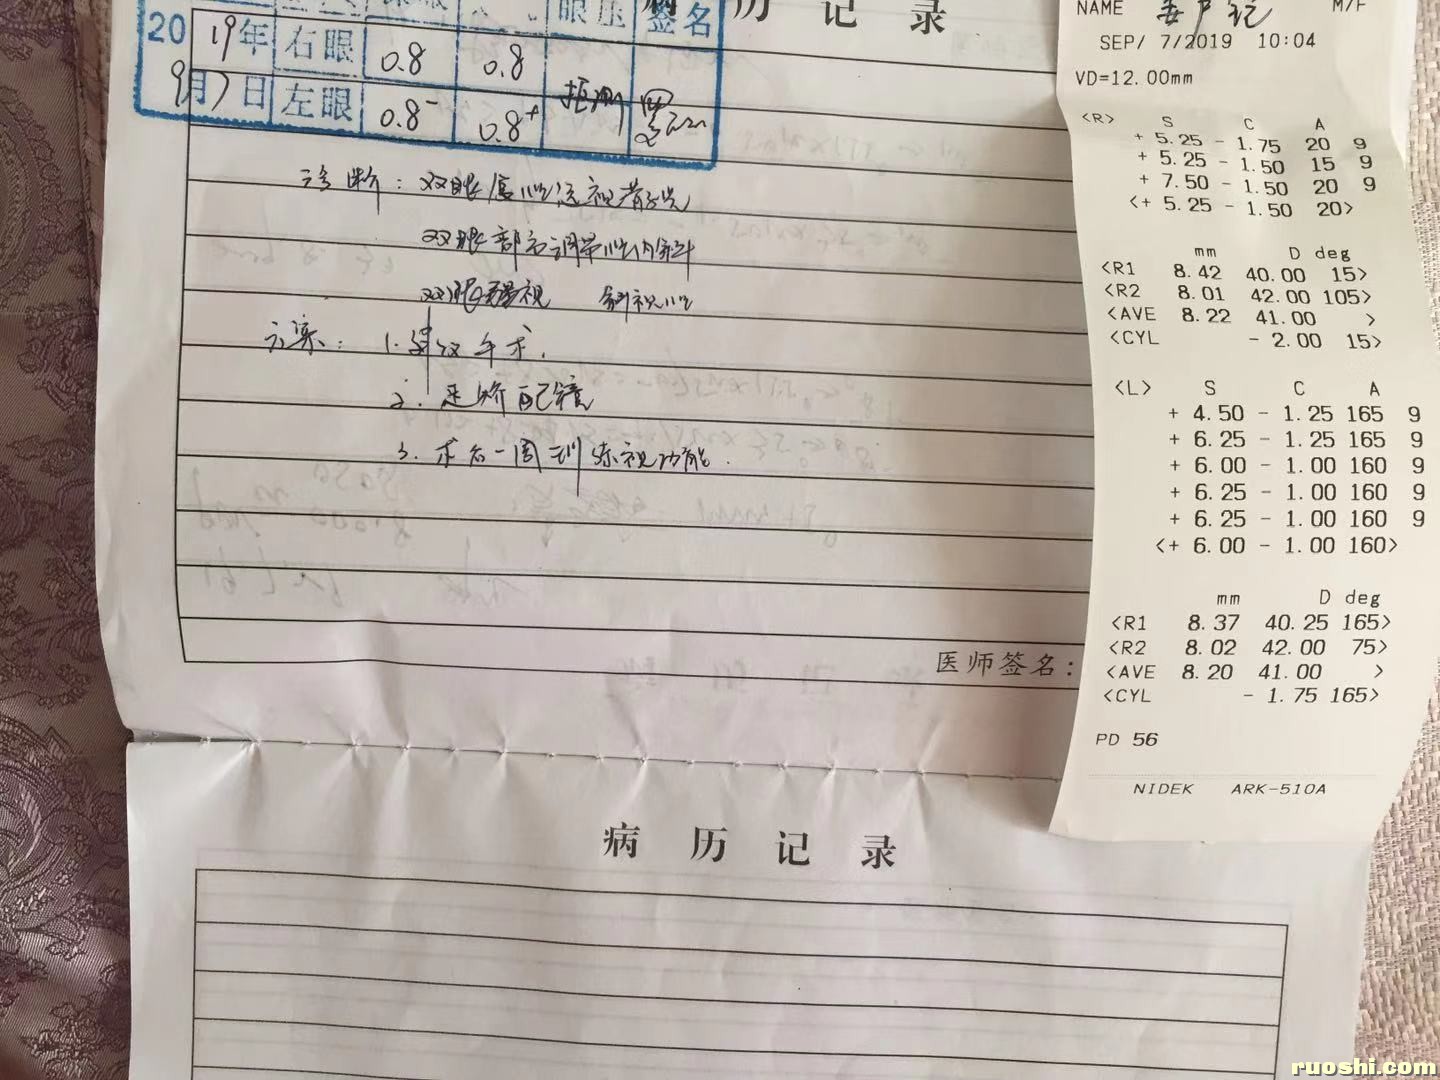 病 历 记 录
眼压 签名
20 19年 右眼 0.8 0.8
9月7日 左眼 0.8⁻ 0.8⁺ 拒测
诊断：双眼屈性远视散光
双眼部分调节性内斜
双眼弱视 斜视性
方案：1.建议手术.
2.足矫配镜
3.术后一周训练视功能.
医师签名:
病 历 记 录
NAME M/F
SEP/ 7/2019 10:04
VD=12.00mm
<R> S C A
+ 5.25 - 1.75 20 9
+ 5.25 - 1.50 15 9
+ 7.50 - 1.50 20 9
<+ 5.25 - 1.50 20>
mm D deg
<R1 8.42 40.00 15>
<R2 8.01 42.00 105>
<AVE 8.22 41.00 >
<CYL - 2.00 15>
<L> S C A
+ 4.50 - 1.25 165 9
+ 6.25 - 1.25 165 9
+ 6.00 - 1.00 160 9
+ 6.25 - 1.00 160 9
+ 6.25 - 1.00 160 9
<+ 6.00 - 1.00 160>
mm D deg
<R1 8.37 40.25 165>
<R2 8.02 42.00 75>
<AVE 8.20 41.00 >
<CYL - 1.75 165>
PD 56
NIDEK ARK-510A
ruoshi.com